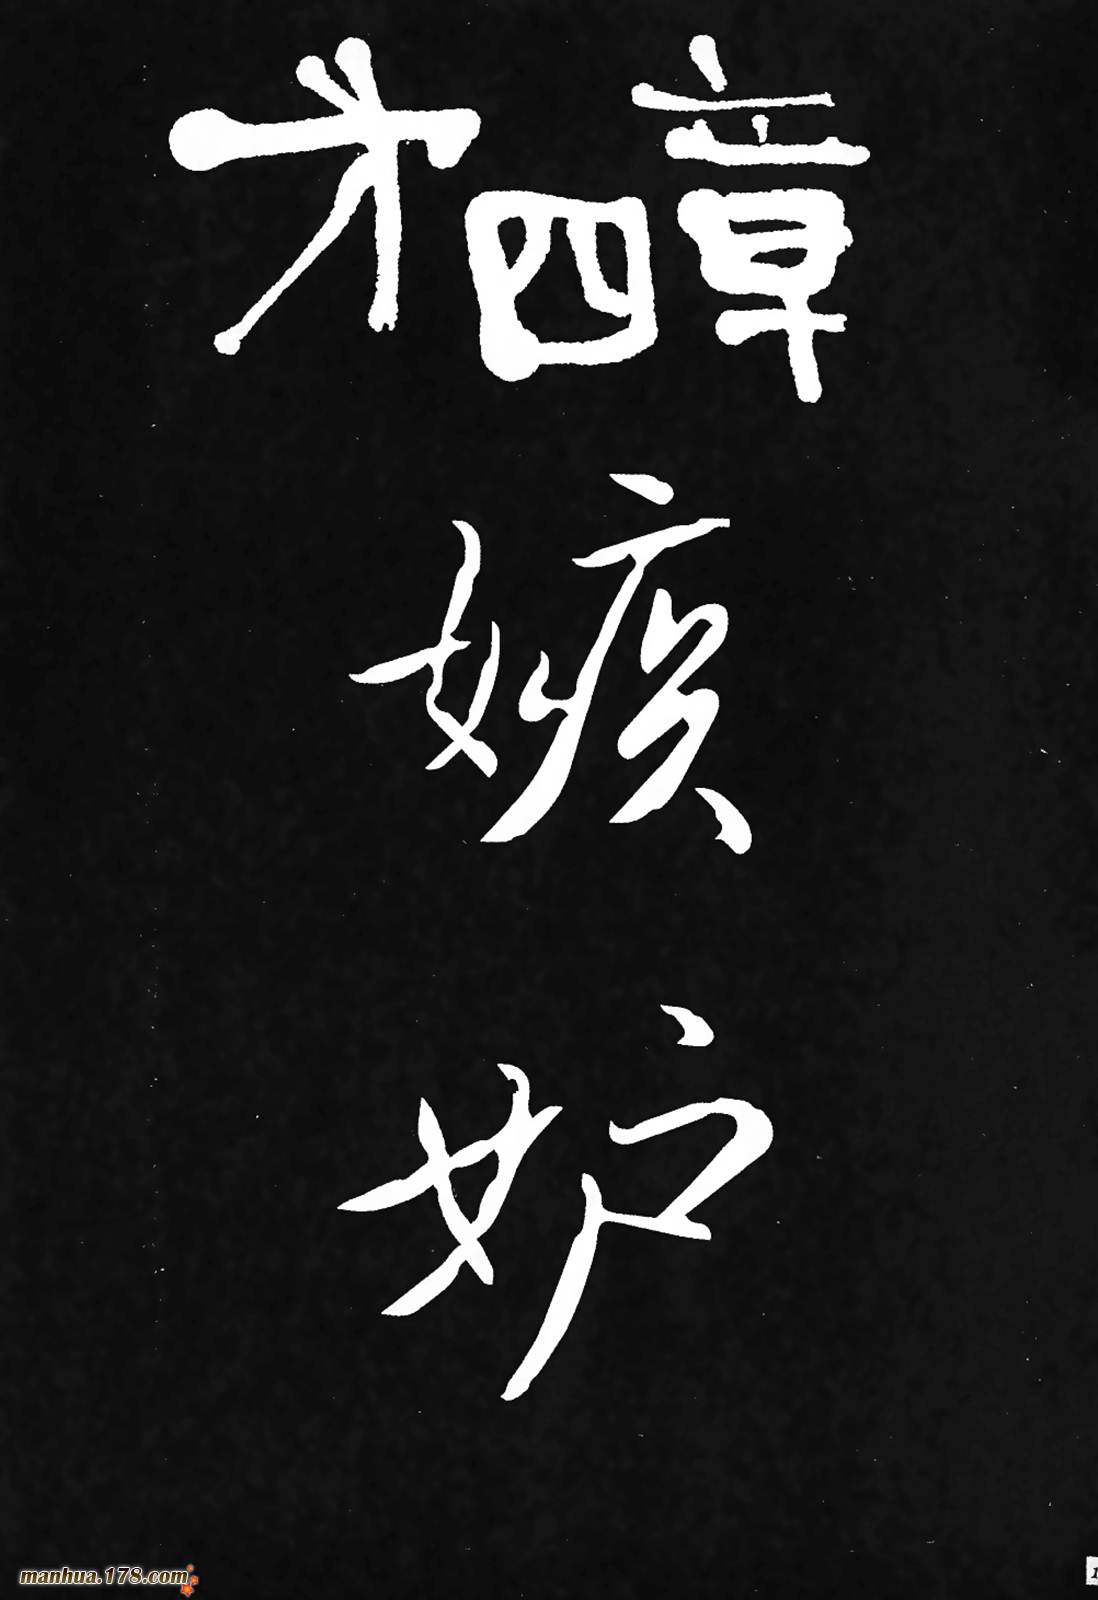 才四章
嫉
妒
manhua.178.com
1